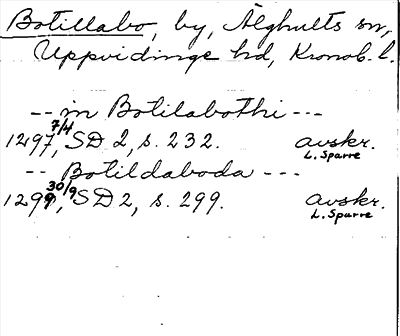 Botillabo, by, Älghults sn,
Uppvidinge hd, Kronob. l.
-- in Botilabothi ---
1297 7/4, SD 2, s. 232. avskr.
L. Sparre
-- Botildaboda ---
1299 30/9, SD 2, s. 299. avskr.
L. Sparre